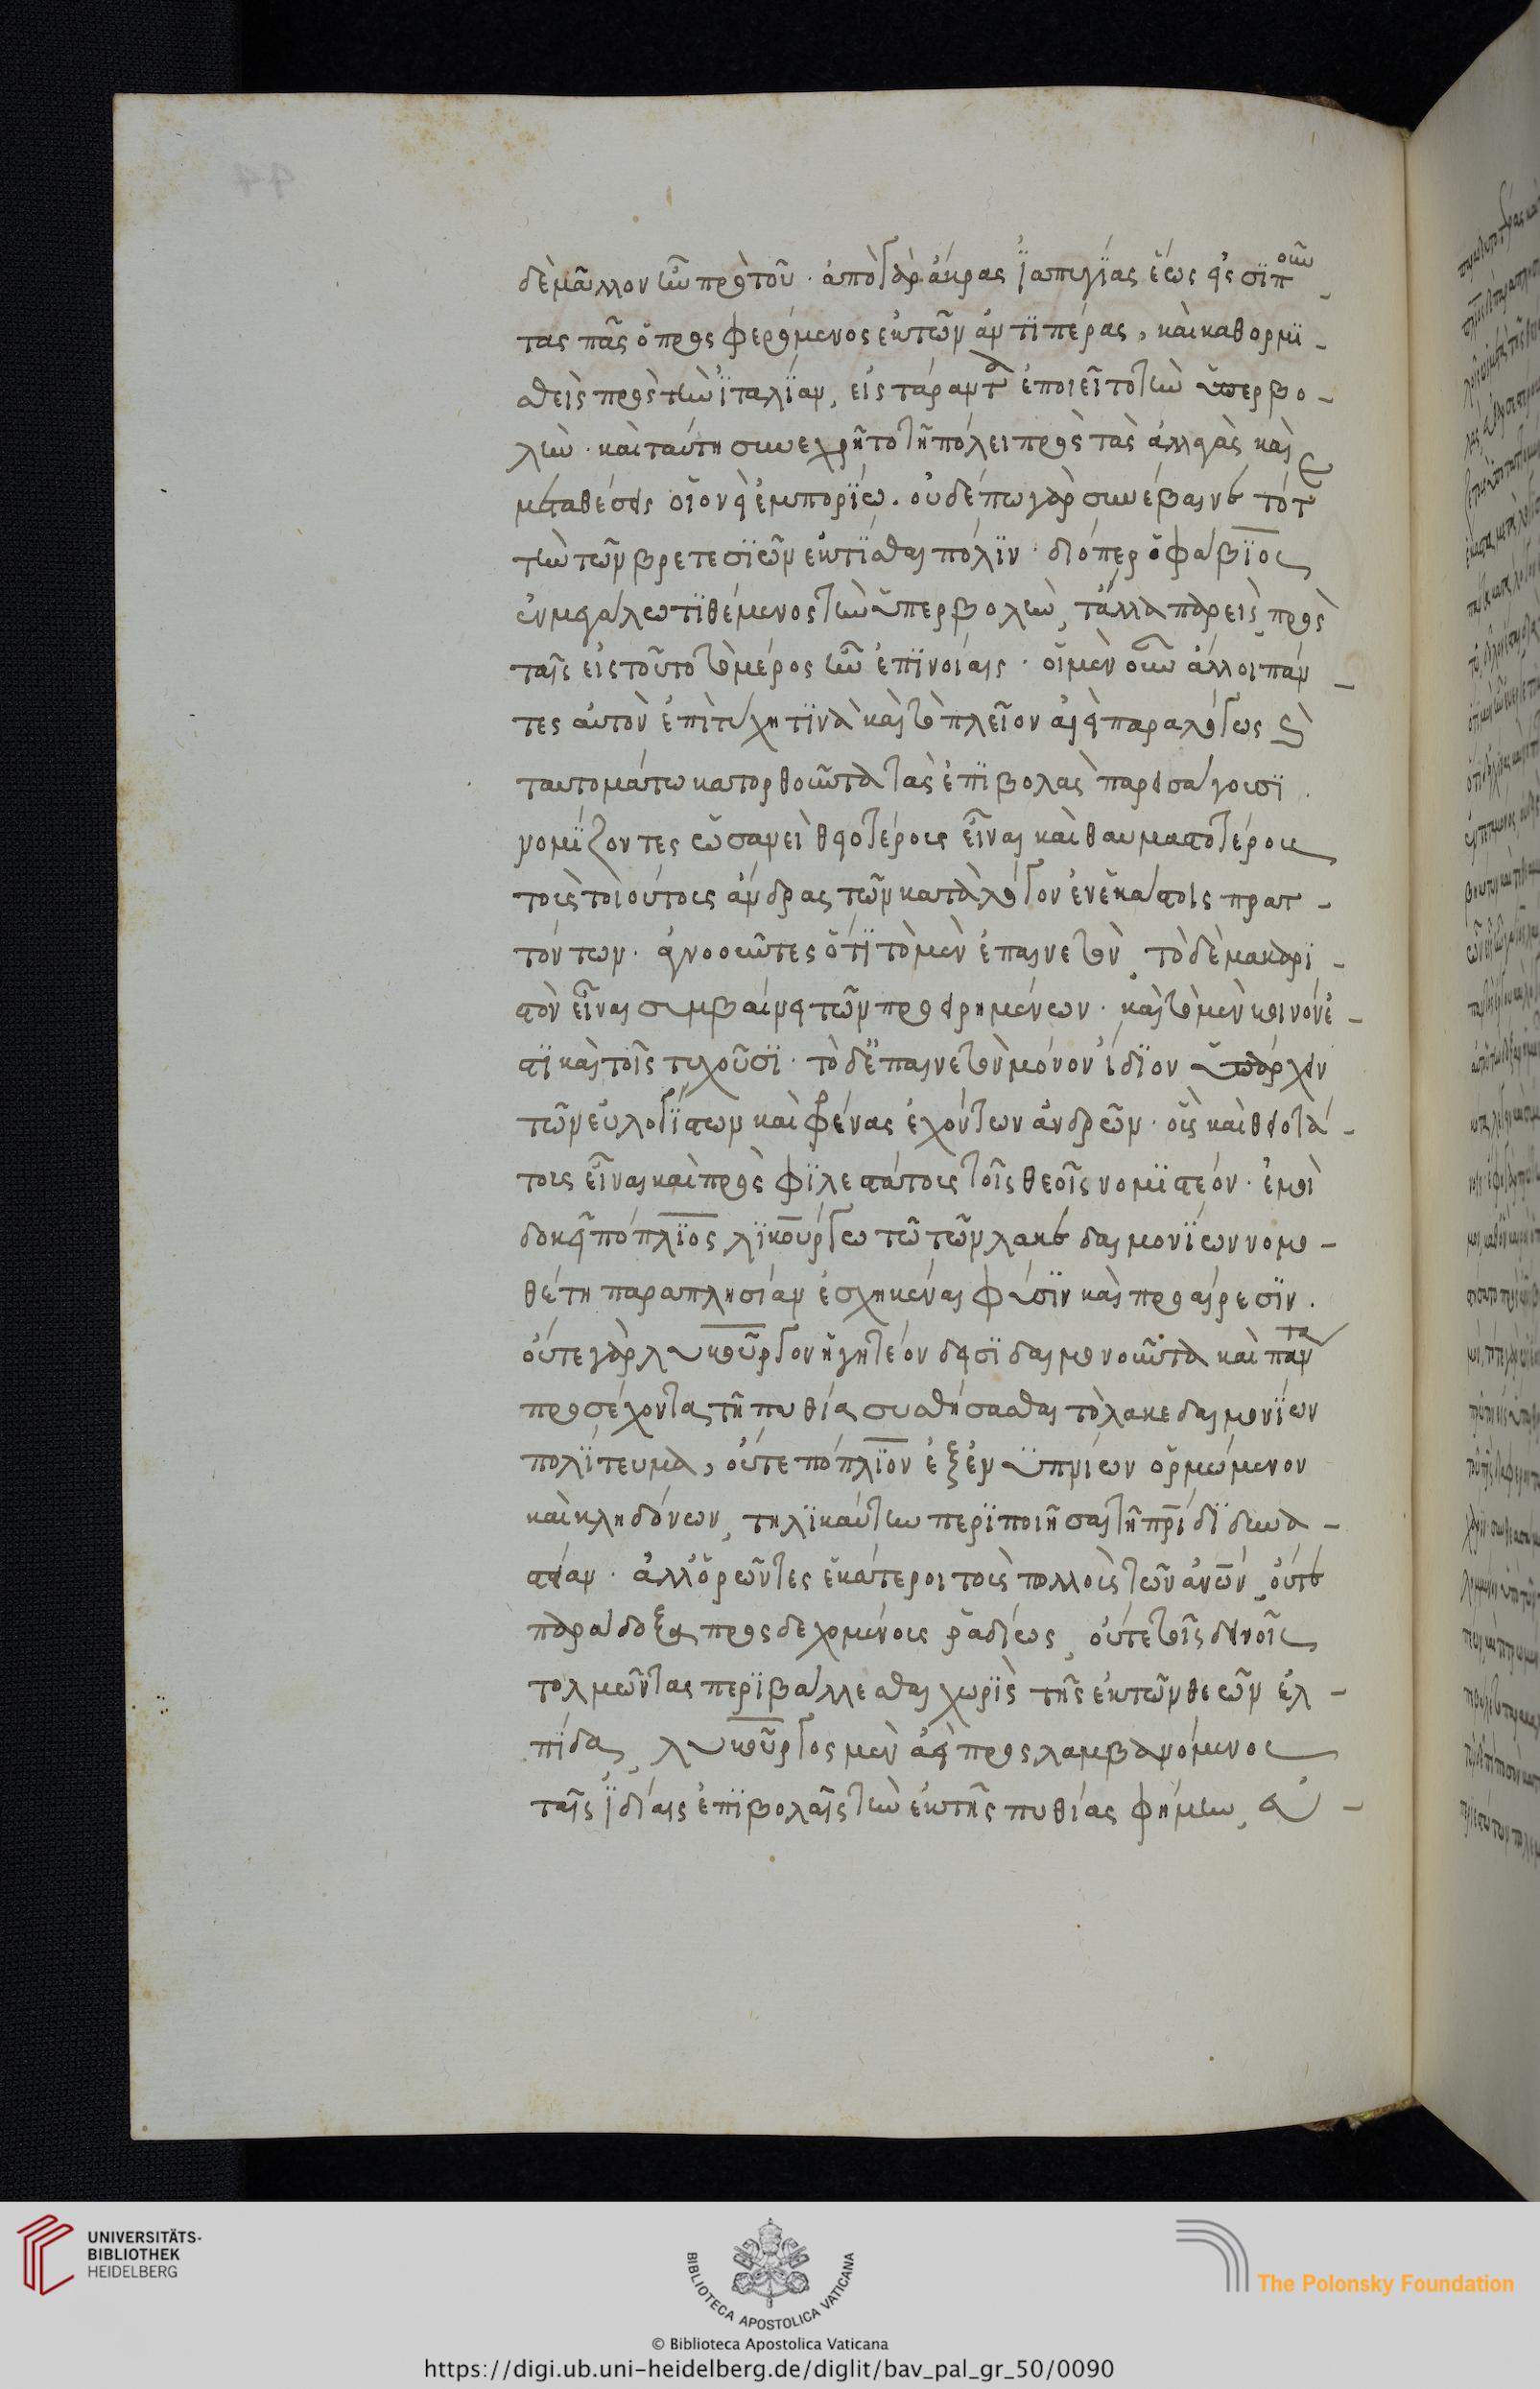 δὲ μᾶλλον ἦν πρὸ τοῦ· ἀπὸ γὰρ ἄκρας ἰαπυγίας ἕως εἰς σιποῦν-
τας πᾶς ὁ προσφερόμενος ἐκ τῶν ἀντιπέρας, καὶ καθορμι-
σθεὶς πρὸς τὴν ἰταλίαν, εἰς τάραντα ἐποιεῖτο τὴν ὑπερβο-
λὴν· καὶ ταύτη συνεχρῆτο τῆ πόλει πρὸς τὰς ἀλλαγὰς καὶ
μεταθέσεις οἷον εἰ ἐμπορίω. οὐδέπω γὰρ συνέβαινε τότε
τὴν τῶν βρετεσίων ἐκτίσθαι πόλιν· διόπερ ὁ φάβιος
ἐν μεγάλω τιθέμενος τὴν ὑπερβολὴν, τἄλλα παρεὶς, πρὸς
ταῖς εἰς τοῦτο τὸ μέρος ἦν ἐπινοίαις· οἱ μὲν οὖν ἄλλοι πάν-
τες αὐτὸν ἐπὶ τύχη τινὰ καὶ τὸ πλεῖον αἰεὶ παραλόγως καὶ
ταυτομάτω κατορθοῦντα τὰς ἐπιβολὰς παρεισάγουσι.
νομίζοντες ὡσανεὶ θειοτέρους εἶναι καὶ θαυμαστοτέρους
τοὺς τοιούτους ἄνδρας τῶν κατὰ λόγον ἐν ἑκάστοις πρατ-
τόντων· ἀγνοοῦντες ὅτι τὸ μὲν ἐπαινετὸν, τὸ δὲ μακαρι-
στὸν εἶναι συμβαίνει τῶν προειρημένων· καὶ τὸ μὲν κοινόν ἐ-
στι καὶ τοῖς τυχοῦσι· τὸ δ' ἐπαινετὸν μόνον ἴδιον ὑπάρχειν
τῶν εὐλογίστων καὶ φρένας ἐχόντων ἀνδρῶν· οὓς καὶ θειοτά-
τους εἶναι καὶ προσφιλεστάτους τοῖς θεοῖς νομιστέον· ἐμοὶ
δοκεῖ πόπλιος λικούργω τῶ τῶν λακεδαιμονίων νομο-
θέτη παραπλησίαν ἐσχηκέναι φύσιν καὶ προαίρεσιν.
οὔτε γὰρ λυκοῦργον ἡγητέον δεισιδαιμονοῦντα καὶ πάντα
προσέχοντας τῆ πυθία συστήσασθαι τὸ λακεδαιμονίων
πολίτευμα, οὔτε πόπλιον ἐξ ἐνυπνίων ὁρμώμενον
καὶ κληδόνων, τηλικαύτην περιποιῆσαι τῆ πρίδι δυνα-
στείαν· ἀλλ' ὁρῶντες ἑκάτεροι τοὺς πολλοὺς τῶν ἀνῶν, οὔτε
παράδοξα προσδεχομένους ῥαδίως, οὔτε τοῖς δεινοῖς
τολμῶντας περιβάλλεσθαι χωρὶς τῆς ἐκ τῶν θεῶν ἐλ-
πίδας, λυκοῦργος μὲν ἀεὶ προσλαμβανόμενος
ταῖς ἰδίαις ἐπιβολαῖς τὴν ἐκ τῆς πυθίας φήμην, εὐ-
UNIVERSITÄTS-
BIBLIOTHEK
HEIDELBERG
BIBLIOTECA APOSTOLICA VATICANA
The Polonsky Foundation
© Biblioteca Apostolica Vaticana
https://digi.ub.uni-heidelberg.de/diglit/bav_pal_gr_50/0090